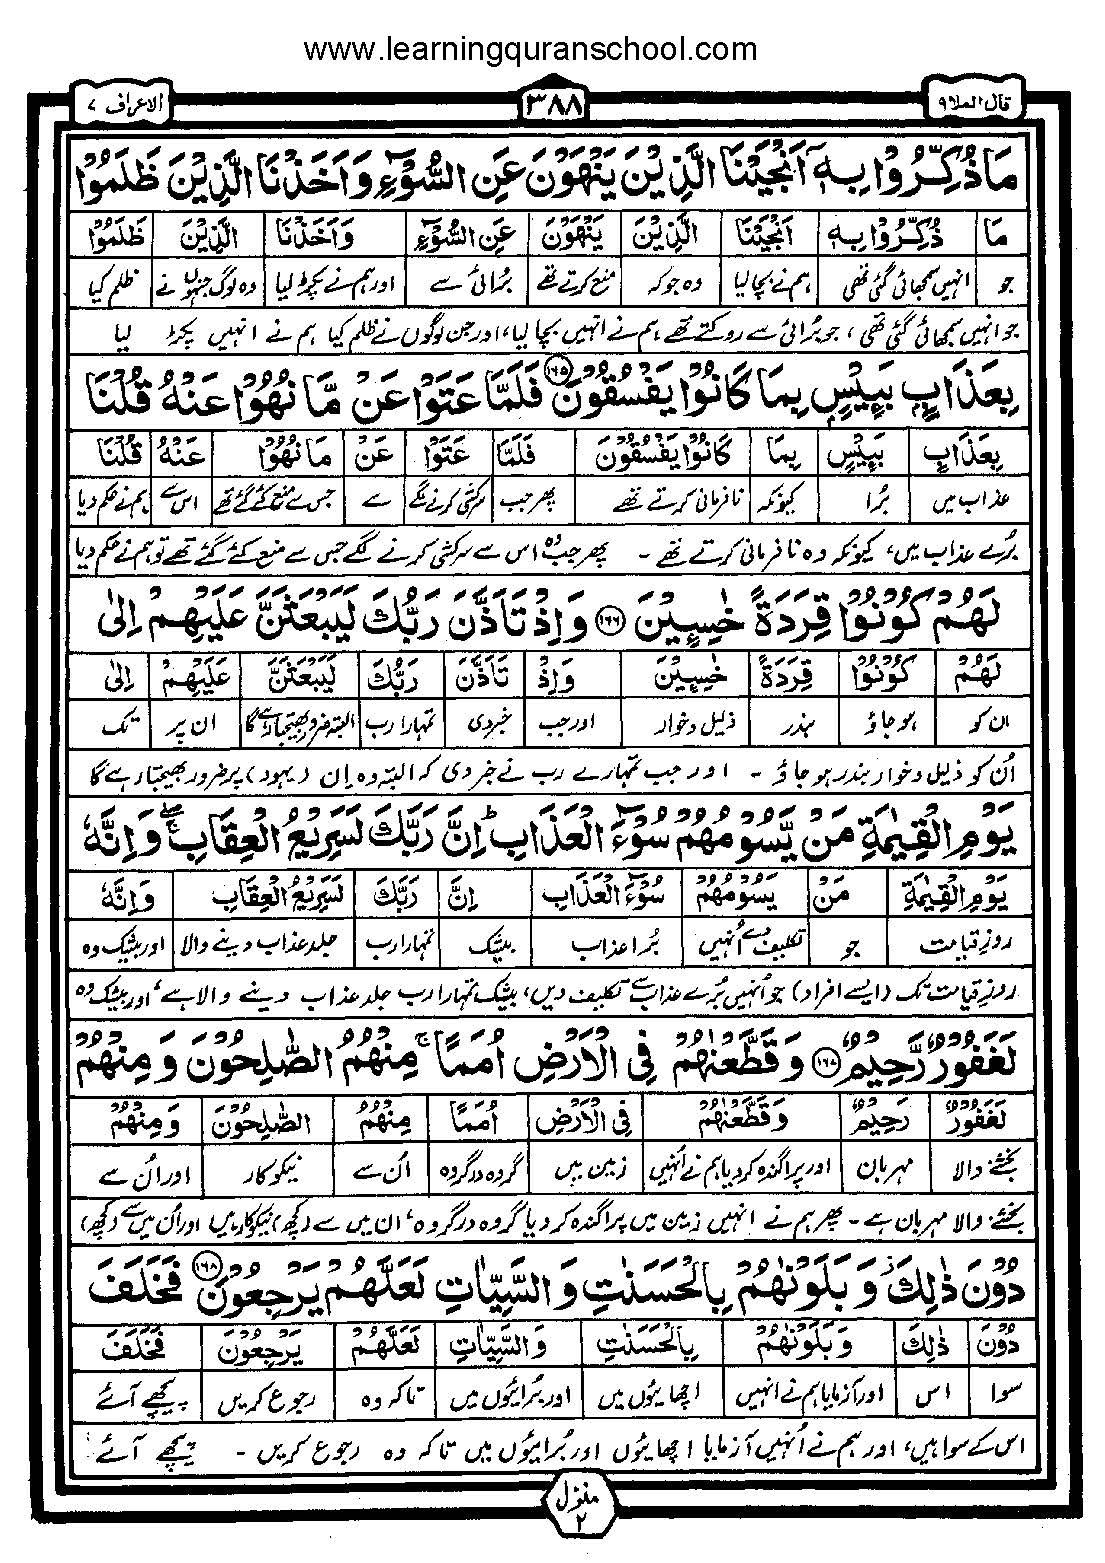 www.learningquranschool.com
قال الملا ۹
۳۸۸
الاعراف ۷
مَا ذُكِّرُوْا بِهٖۤ اَنْجَيْنَا الَّذِيْنَ يَنْهَوْنَ عَنِ السُّوْٓءِ وَاَخَذْنَا الَّذِيْنَ ظَلَمُوْا
مَا ذُكِّرُوْا بِهٖۤ اَنْجَيْنَا الَّذِيْنَ يَنْهَوْنَ عَنِ السُّوْٓءِ وَاَخَذْنَا الَّذِيْنَ ظَلَمُوْا
جو انہیں سمجھائی گئی تھی ہم نے بچا لیا وہ جو کہ منع کرتے تھے برائی سے اور ہم نے پکڑ لیا وہ لوگ جنہوں نے ظلم کیا
جو انہیں سمجھائی گئی تھی، جو برائی سے روکتے تھے ہم نے انہیں بچا لیا، اور جن لوگوں نے ظلم کیا ہم نے انہیں پکڑ لیا
بِعَذَابٍۭ بَـِٔيْسٍۭ بِمَا كَانُوْا يَفْسُقُوْنَ ۱۶۵ فَلَمَّا عَتَوْا عَنْ مَّا نُهُوْا عَنْهُ قُلْنَا
بِعَذَابٍ بَـِٔيْسٍ بِمَا كَانُوْا يَفْسُقُوْنَ فَلَمَّا عَتَوْا عَنْ مَا نُهُوْا عَنْهُ قُلْنَا
عذاب میں برا کیونکہ نافرمانی کرتے تھے پھر جب سرکشی کرنے لگے سے جس سے منع کئے گئے تھے اس سے ہم نے حکم دیا
برے عذاب میں، کیونکہ وہ نافرمانی کرتے تھے - پھر جب وہ اس سے سرکشی کرنے لگے جس سے منع کئے گئے تھے تو ہم نے حکم دیا
لَهُمْ كُوْنُوْا قِرَدَةً خٰسِـِٕيْنَ ۱۶۶ وَاِذْ تَاَذَّنَ رَبُّكَ لَيَبْعَثَنَّ عَلَيْهِمْ اِلٰى
لَهُمْ كُوْنُوْا قِرَدَةً خٰسِـِٕيْنَ وَاِذْ تَاَذَّنَ رَبُّكَ لَيَبْعَثَنَّ عَلَيْهِمْ اِلٰى
ان کو ہو جاؤ بندر ذلیل و خوار اور جب خبر دی تمہارا رب البتہ ضرور بھیجتا رہے گا ان پر تک
اُن کو ذلیل و خوار بندر ہو جاؤ - اور جب تمہارے رب نے خبر دی کہ البتہ وہ ان (یہود) پر ضرور بھیجتا رہے گا
يَوْمِ الْقِيٰمَةِ مَنْ يَّسُوْمُهُمْ سُوْٓءَ الْعَذَابِ ؕ اِنَّ رَبَّكَ لَسَرِيْعُ الْعِقَابِ ۖۚ وَاِنَّهٗ
يَوْمِ الْقِيٰمَةِ مَنْ يَسُوْمُهُمْ سُوْٓءَ الْعَذَابِ اِنَّ رَبَّكَ لَسَرِيْعُ الْعِقَابِ وَاِنَّهٗ
روز قیامت جو تکلیف دے اُنہیں بُرا عذاب بیشک تمہارا رب جلد عذاب دینے والا اور بیشک وہ
روزِ قیامت تک (ایسے افراد) جو اُنہیں بُرے عذاب سے تکلیف دیں، بیشک تمہارا رب جلد عذاب دینے والا ہے، اور بیشک وہ
لَغَفُوْرٌ رَّحِيْمٌ ۱۶۸ وَقَطَّعْنٰهُمْ فِى الْاَرْضِ اُمَمًا ۚ مِنْهُمُ الصّٰلِحُوْنَ وَمِنْهُمْ
لَغَفُوْرٌ رَحِيْمٌ وَقَطَّعْنٰهُمْ فِى الْاَرْضِ اُمَمًا مِنْهُمُ الصّٰلِحُوْنَ وَمِنْهُمْ
بخشنے والا مہربان اور پراگندہ کر دیا ہم نے اُنہیں زمین میں گروہ در گروہ اُن سے نیکوکار اور اُن سے
بخشنے والا مہربان ہے - پھر ہم نے انہیں زمین میں پراگندہ کر دیا گروہ در گروہ، ان میں سے (کچھ) نیکوکار ہیں اور اُن میں سے (کچھ)
دُوْنَ ذٰلِكَ وَبَلَوْنٰهُمْ بِالْحَسَنٰتِ وَالسَّيِّاٰتِ لَعَلَّهُمْ يَرْجِعُوْنَ ۱۶۸ فَخَلَفَ
دُوْنَ ذٰلِكَ وَبَلَوْنٰهُمْ بِالْحَسَنٰتِ وَالسَّيِّاٰتِ لَعَلَّهُمْ يَرْجِعُوْنَ فَخَلَفَ
سوا اس اور آزمایا ہم نے انہیں اچھائیوں میں اور برائیوں میں تاکہ وہ رجوع کریں پیچھے آئے
اس کے سوا ہیں، اور ہم نے اُنہیں آزمایا اچھائیوں اور برائیوں میں تاکہ وہ رجوع کریں - پیچھے آئے
منزل ۲